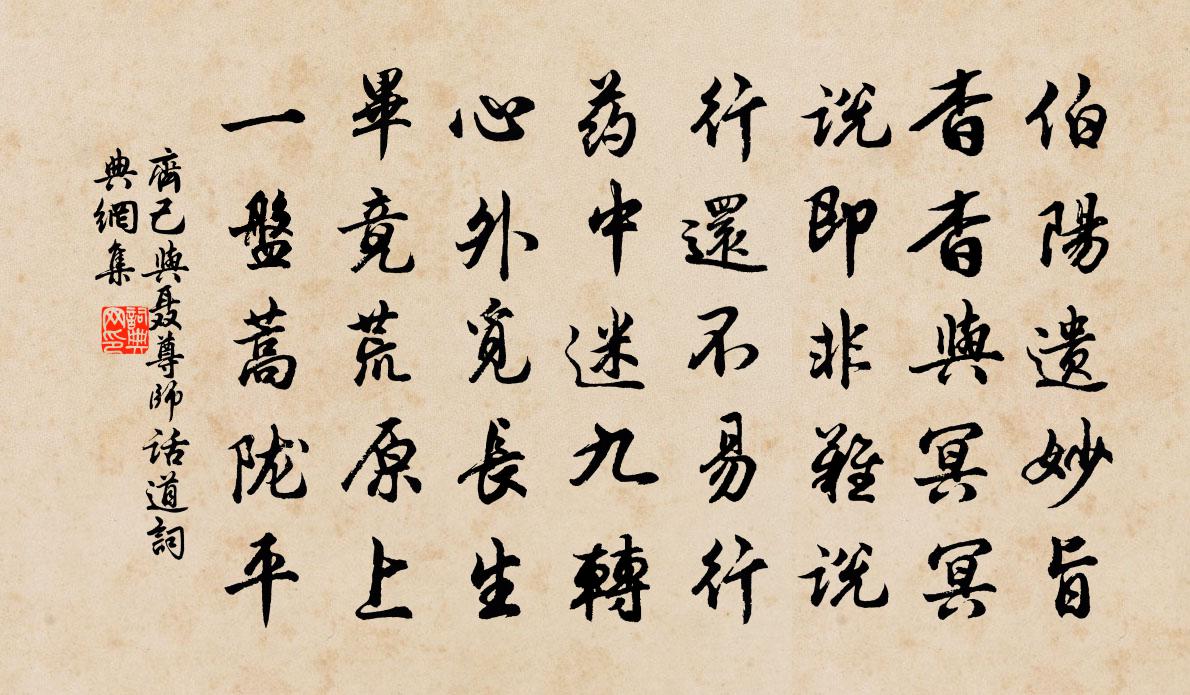 伯陽遗妙旨
杳杳與冥冥
説即非難説
行還不易行
药中迷九轉
心外覓長生
畢竟荒原上
一盤蒿陇平
齊己與聂尊師话道詞
典網集
詞典
网印